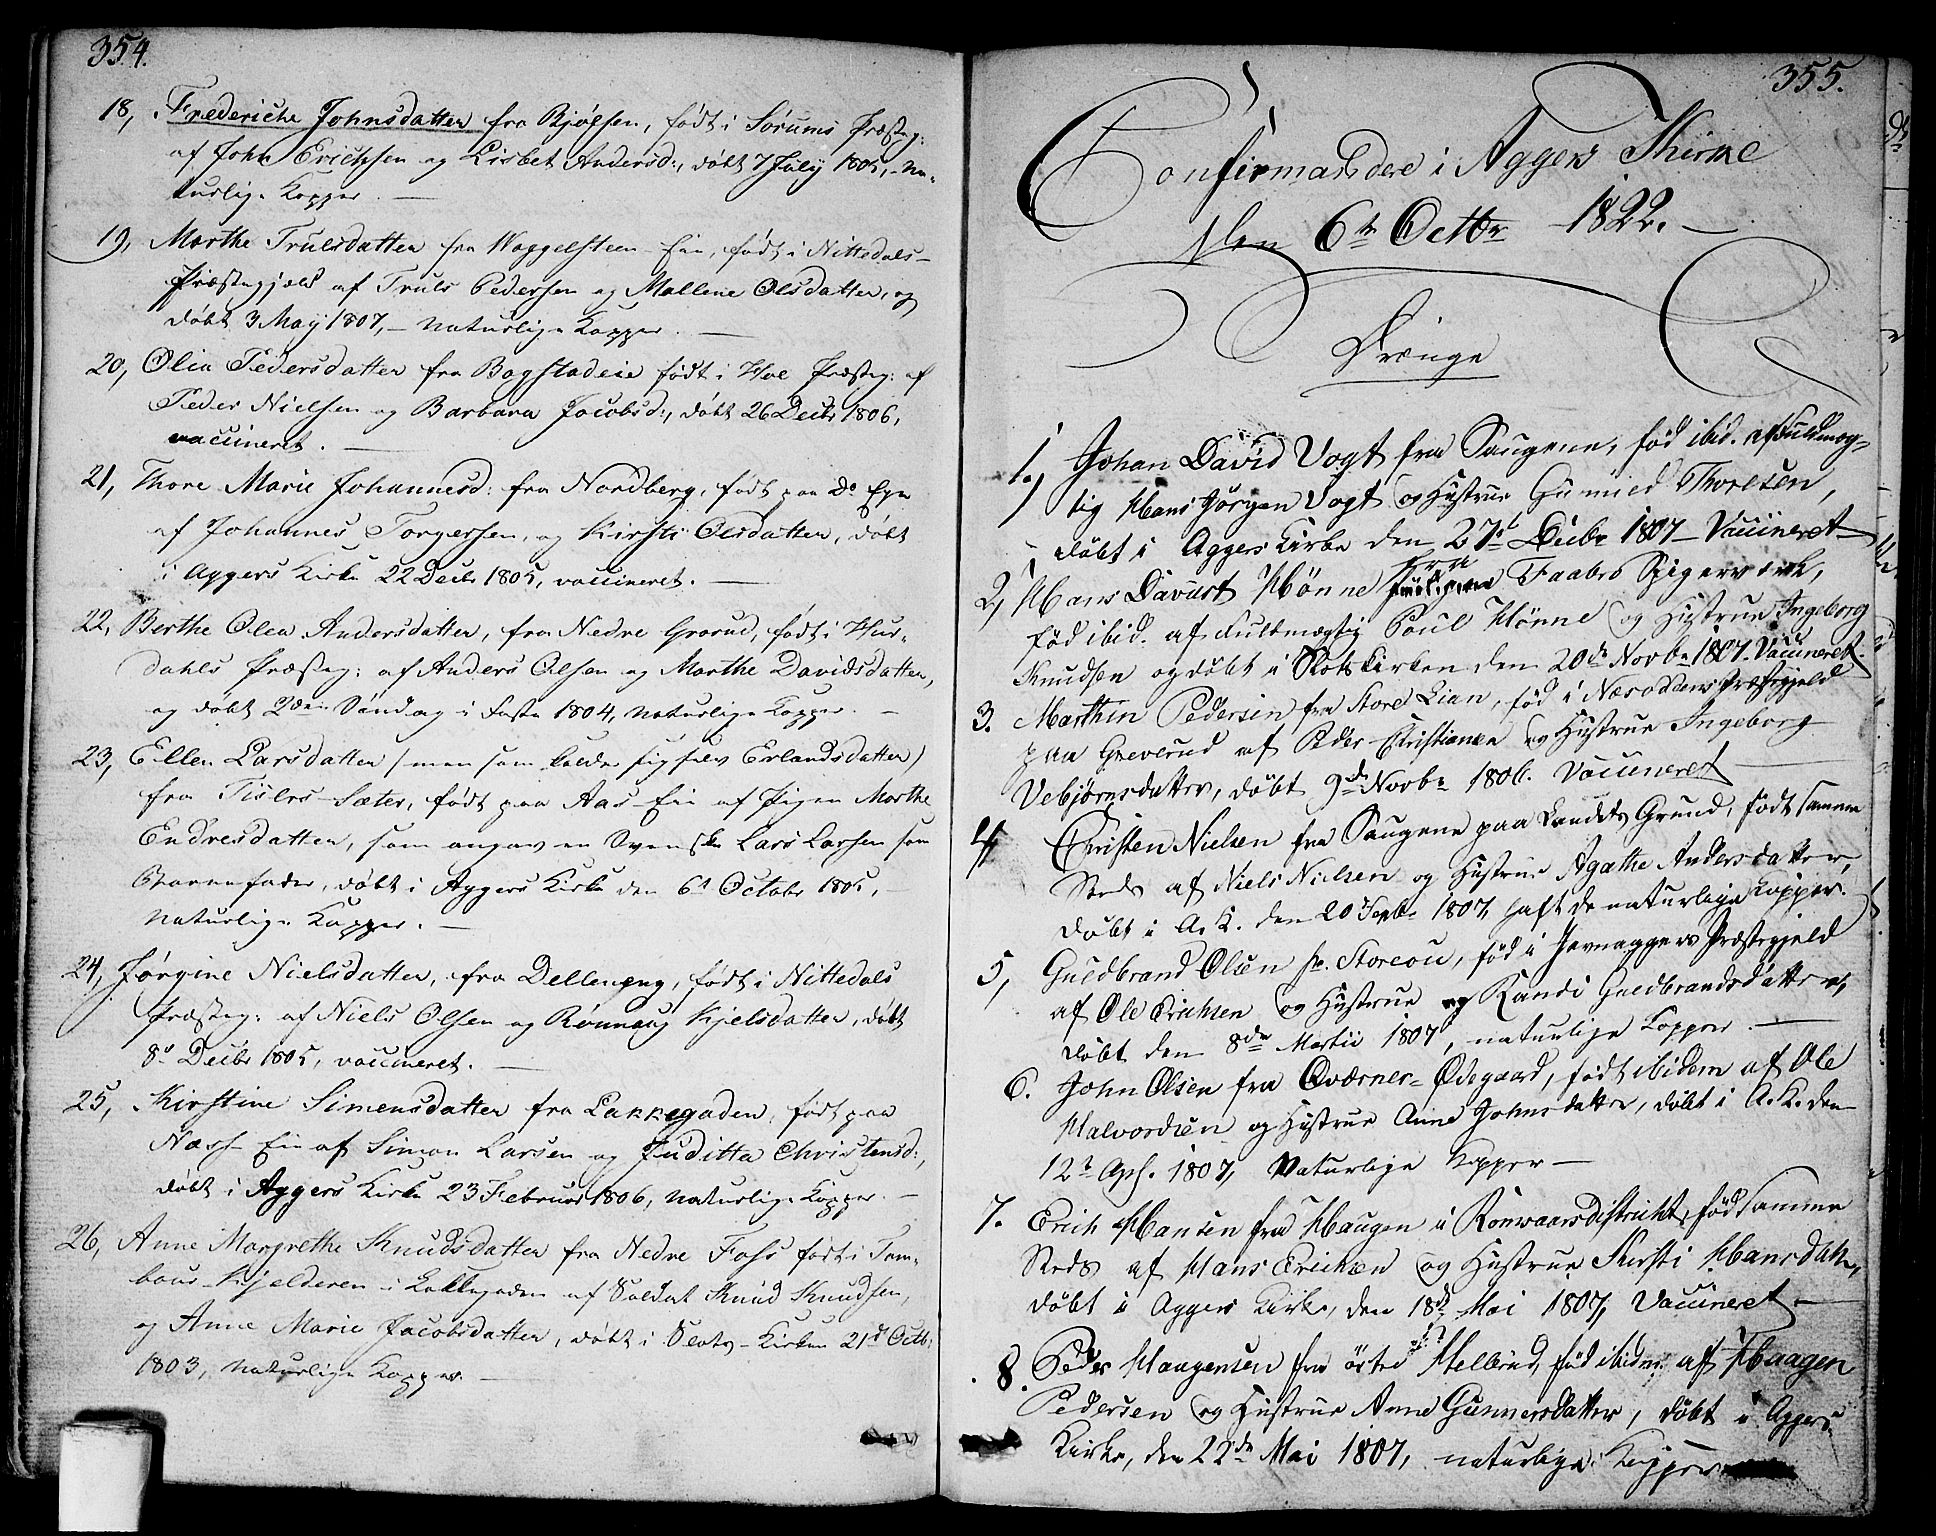 354.
18, Frederiche Johnsdatter fra Bjølsen, født i Sørums Præsteg:
af John Erichsen og Lisbet Andersd:, døbt 7 July 1805, na-
turlige Kopper. —
19, Marthe Trulsdatter fra Waggesteen-Eie, født i Nittedals-
Præstegjæld af Truls Pedersen og Mallene Olsdatter, og
døbt 3 May 1807, — naturlige Kopper. —
20, Olea Pedersdatter fra Bogstadeie født i Hoe Præsteg: af
Peder Nielsen og Barbara Jacobsd:, døbt 26 Decbr 1806,
vaccineret. —
21, Thore Marie Johannesd: fra Nordberg, født paa Do Eie
af Johannes Torgersen, og Kirsti Olsdatter, døbt
i Aggers Kirke 22 Decbr 1805, vaccineret. —
22, Berthe Olea Andersdatter, fra Nedre Grorud, født i Hur-
dahls Præsteg: af Anders Olsen og Marthe Davidsdatter,
og døbt 2den Søndag i Faste 1804, naturlige Kopper. —
23, Ellen Larsdatter (men som kalder sig selv Erlandsdatter)
fra Tislos-Sæter, født paa Aas-Eie af Pigen Marthe
Endresdatter, som angav en Svenske Lars Larsen som
Barnefader, døbt i Aggers Kirke den 6t October 1805, —
naturlige Kopper. —
24, Jørgine Nielsdatter, fra Delleneng, født i Nittedals
Præsteg: af Niels Olsen og Rønnaug Kjelsdatter, døbt
8d Decbr 1805, vaccineret. —
25, Kirstine Simensdatter fra Lakkegaden, født paa
Næss-Eie af Simon Larsen og Juditta Christensd:,
døbt i Aggers Kirke 23 Februar 1806, naturlige Kopper. —
26, Anne Margrethe Knudsdatter fra Nedre Foss født i Tom-
bour-Kjelderen i Lakkegaden af Soldat Knud Knudsen,
og Anne Marie Jacobsdatter, døbt i Slots-Kirken 21d Octb:
1803, naturlige Kopper. —
355.
Confirmandere i Aggers Kirke
den 6te Octbr 1822. —
Drænge
1, Johan David Vogt fra Saugene, fød ibid. af Fuldmæg-
tig Hans Jørgen Vogt og Hustrue Gunnied Thoresen,
døbt i Aggers Kirke den 27d Decbr 1807 — Vaccineret —
2, Hans Davust Hønne fra Faabro Spigerværk,
fød ibid. af Fuldmægtig Poul Hønne og Hustrue Ingeborg
Knudsen og døbt i Slotskirken den 20de Novbr 1807. Vaccineret.
3. Marthin Pedersen fra Store Lian, fød i Næsoddens Præstegjeld
paa Greverud af Peder Christiansen og Hustrue Ingeborg
Vebjørnsdatter, døbt 9de Novbr 1806. Vaccineret —
4, Christen Nielsen fra Saugene paa Grund, født samme
Steds af Niels Nielsen og Hustrue Agathe Andersdatter,
døbt i A. K. den 20 Septbr 1807, haft de naturlige Kopper.
5, Guldbrand Olsen fr. Storeou, fød i Jevnaggers Præstegjeld
af Ole Erichsen og Hustrue Randi Guldbrandsdatter,
døbt den 8de Martii 1807, naturlige Kopper. —
6. John Olsen fra Qværner-Ødegaard, født ibidem af Ole
Halvordsen og Hustrue Anne Johnsdatter, døbt i A. K. den
12te Apr. 1807, Naturlige Kopper —
7. Erich Hansen fra Haugen i districkt, fød samme
Steds af Hans Ericksen og Hustrue Kirsti Hansdatt,
døbt i Aggers Kirke, den 18de Mai 1807, Vaccineret —
8. Peder Haagensen fra østre Hellerud, fød ibidem af Haagen
Pedersen og Hustrue Anne Gunnersdatter, døbt i Aggers-
Kirke, den 22de Mai 1807, naturlige Kopper